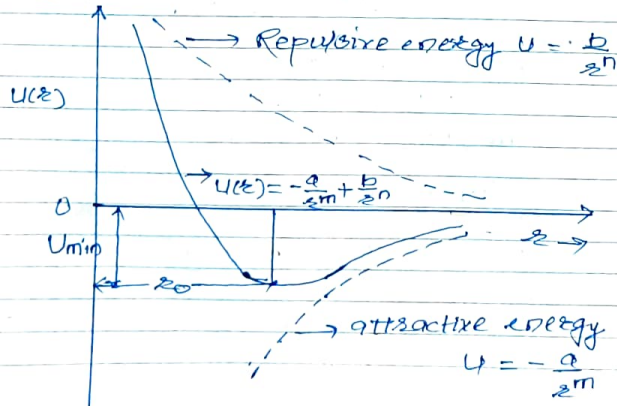 → Repulsive energy U = b/rⁿ
U(r)
→ U(r) = -a/rᵐ + b/rⁿ
0
r →
Umin
r₀
→ attractive energy
U = -a/rᵐ